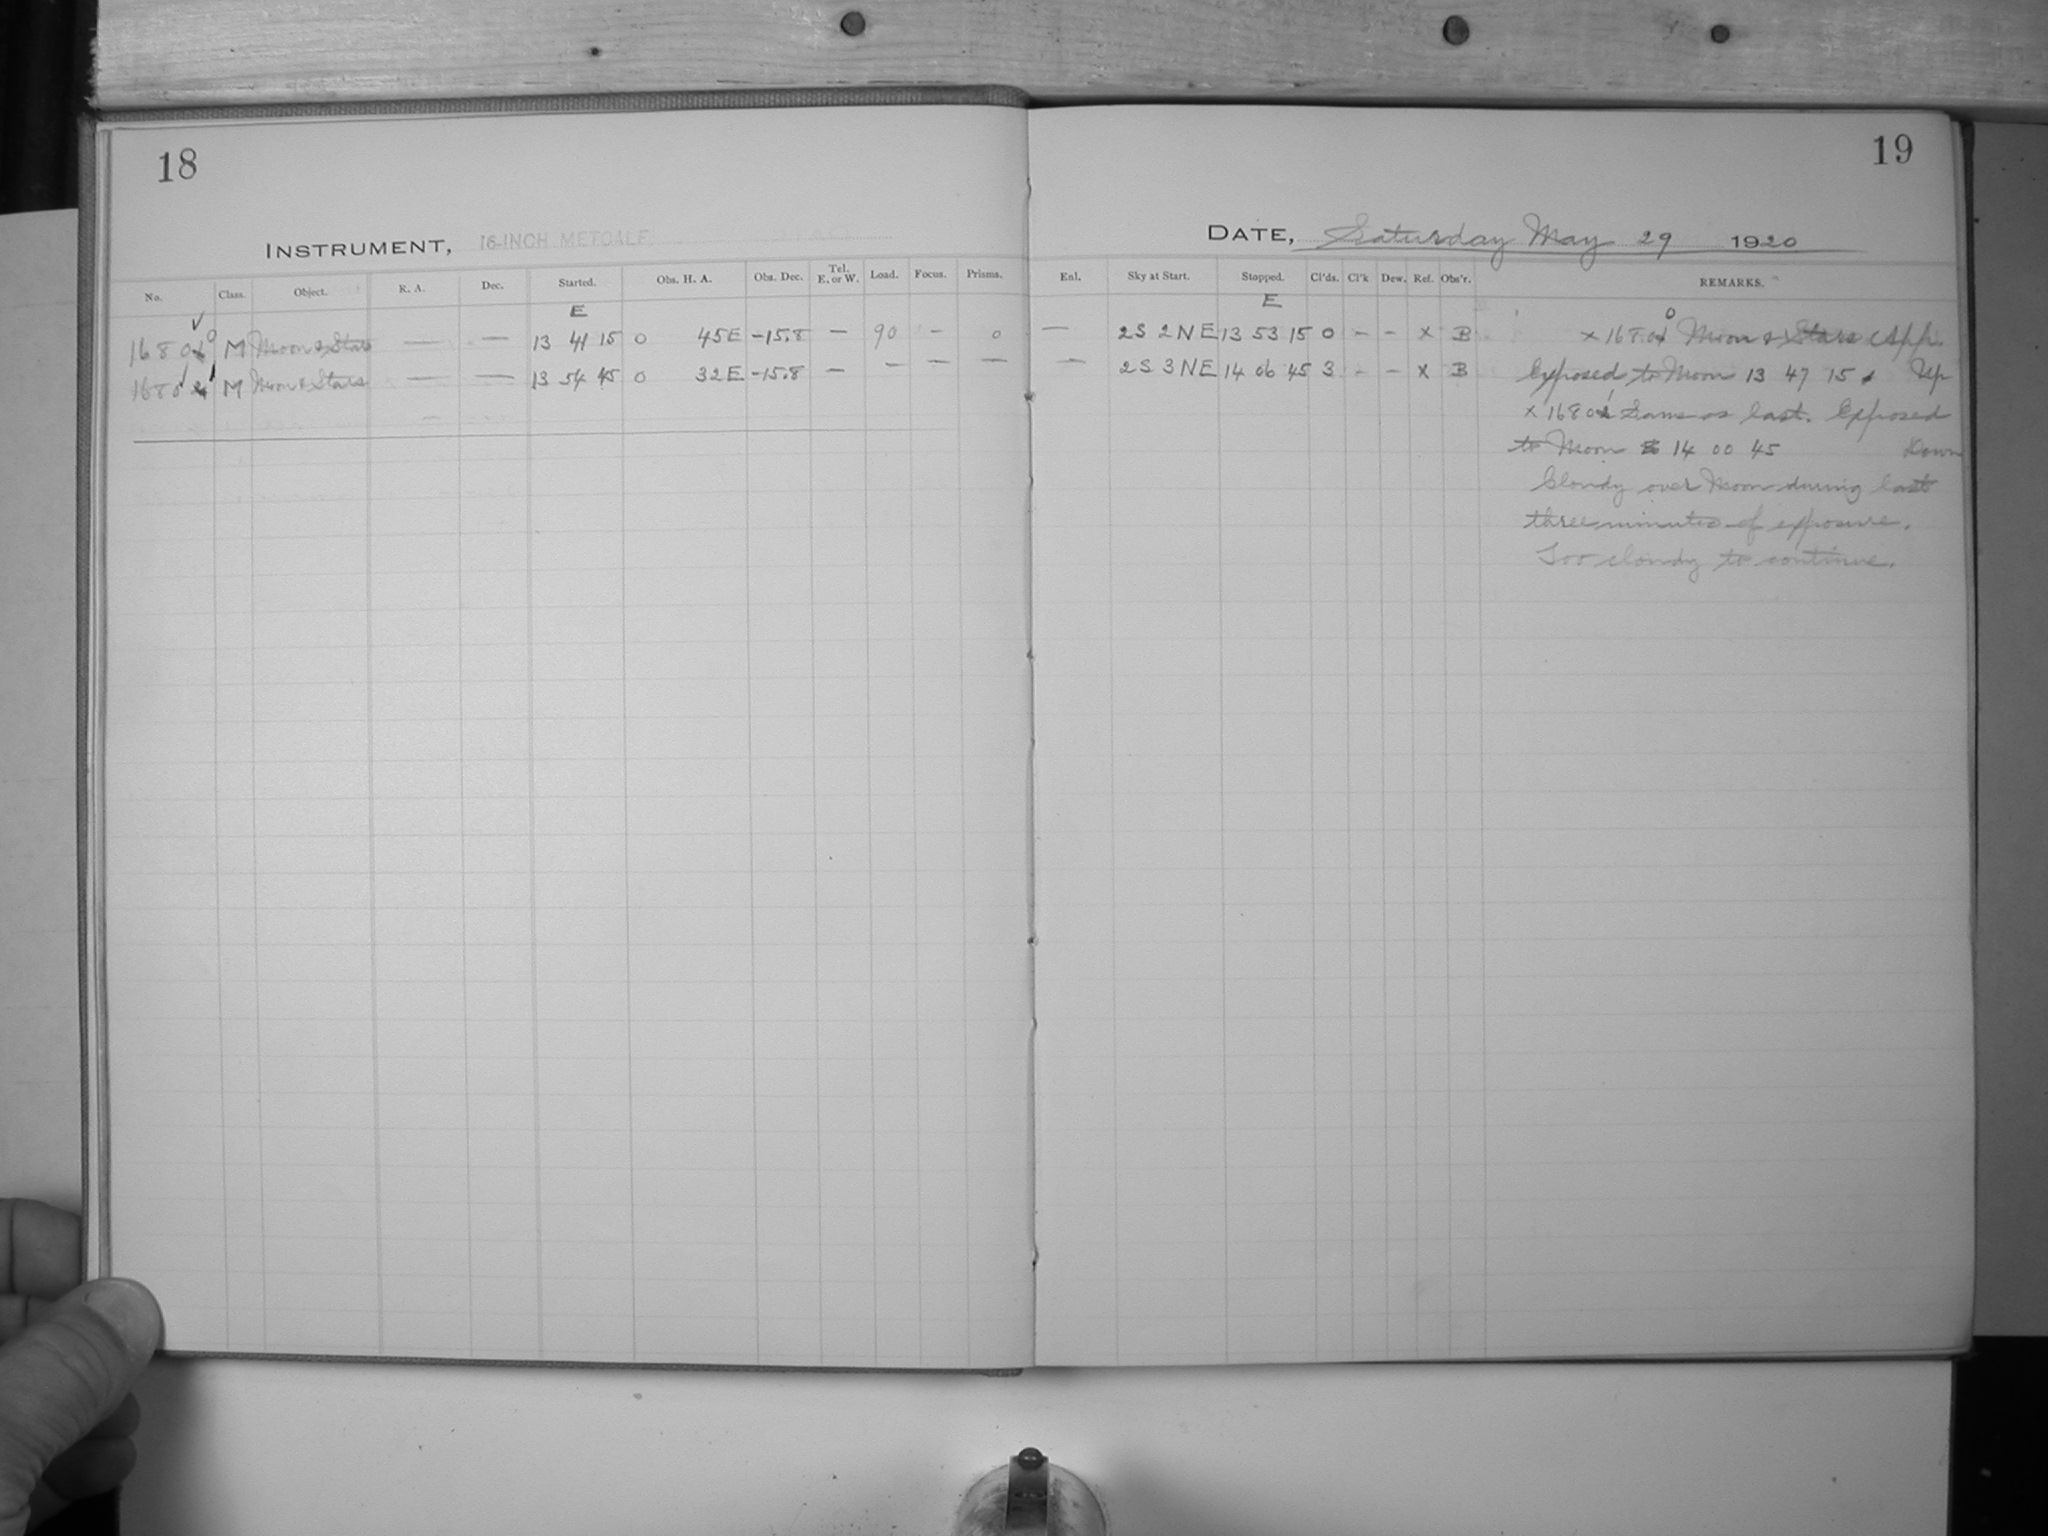 18
INSTRUMENT, 16-INCH METCALF
No. Class. Object. R. A. Dec. Started. Obs. H. A. Obs. Dec. Tel. E. or W. Load. Focus. Prisms.
E
16800 M Moon & Stars — — 13 41 15 0 45E -15.8 — 90 - 0
16801 M Moon & Stars — — 13 54 45 0 32E -15.8 — - — —
19
DATE, Saturday May 29 1920
Enl. Sky at Start. Stopped. Cl'ds. Cl'k Dew. Ref. Obs'r. REMARKS.
E
— 2S 2NE 13 53 15 0 - - x B
— 2S 3NE 14 06 45 3 - - x B
x 16800 Moon & Stars App.
Exposed to Moon 13 47 15 Up
x 16801 Same as last. Exposed
to Moon 14 00 45 Down
Cloudy over Moon during last
three minutes of exposure.
Too cloudy to continue.